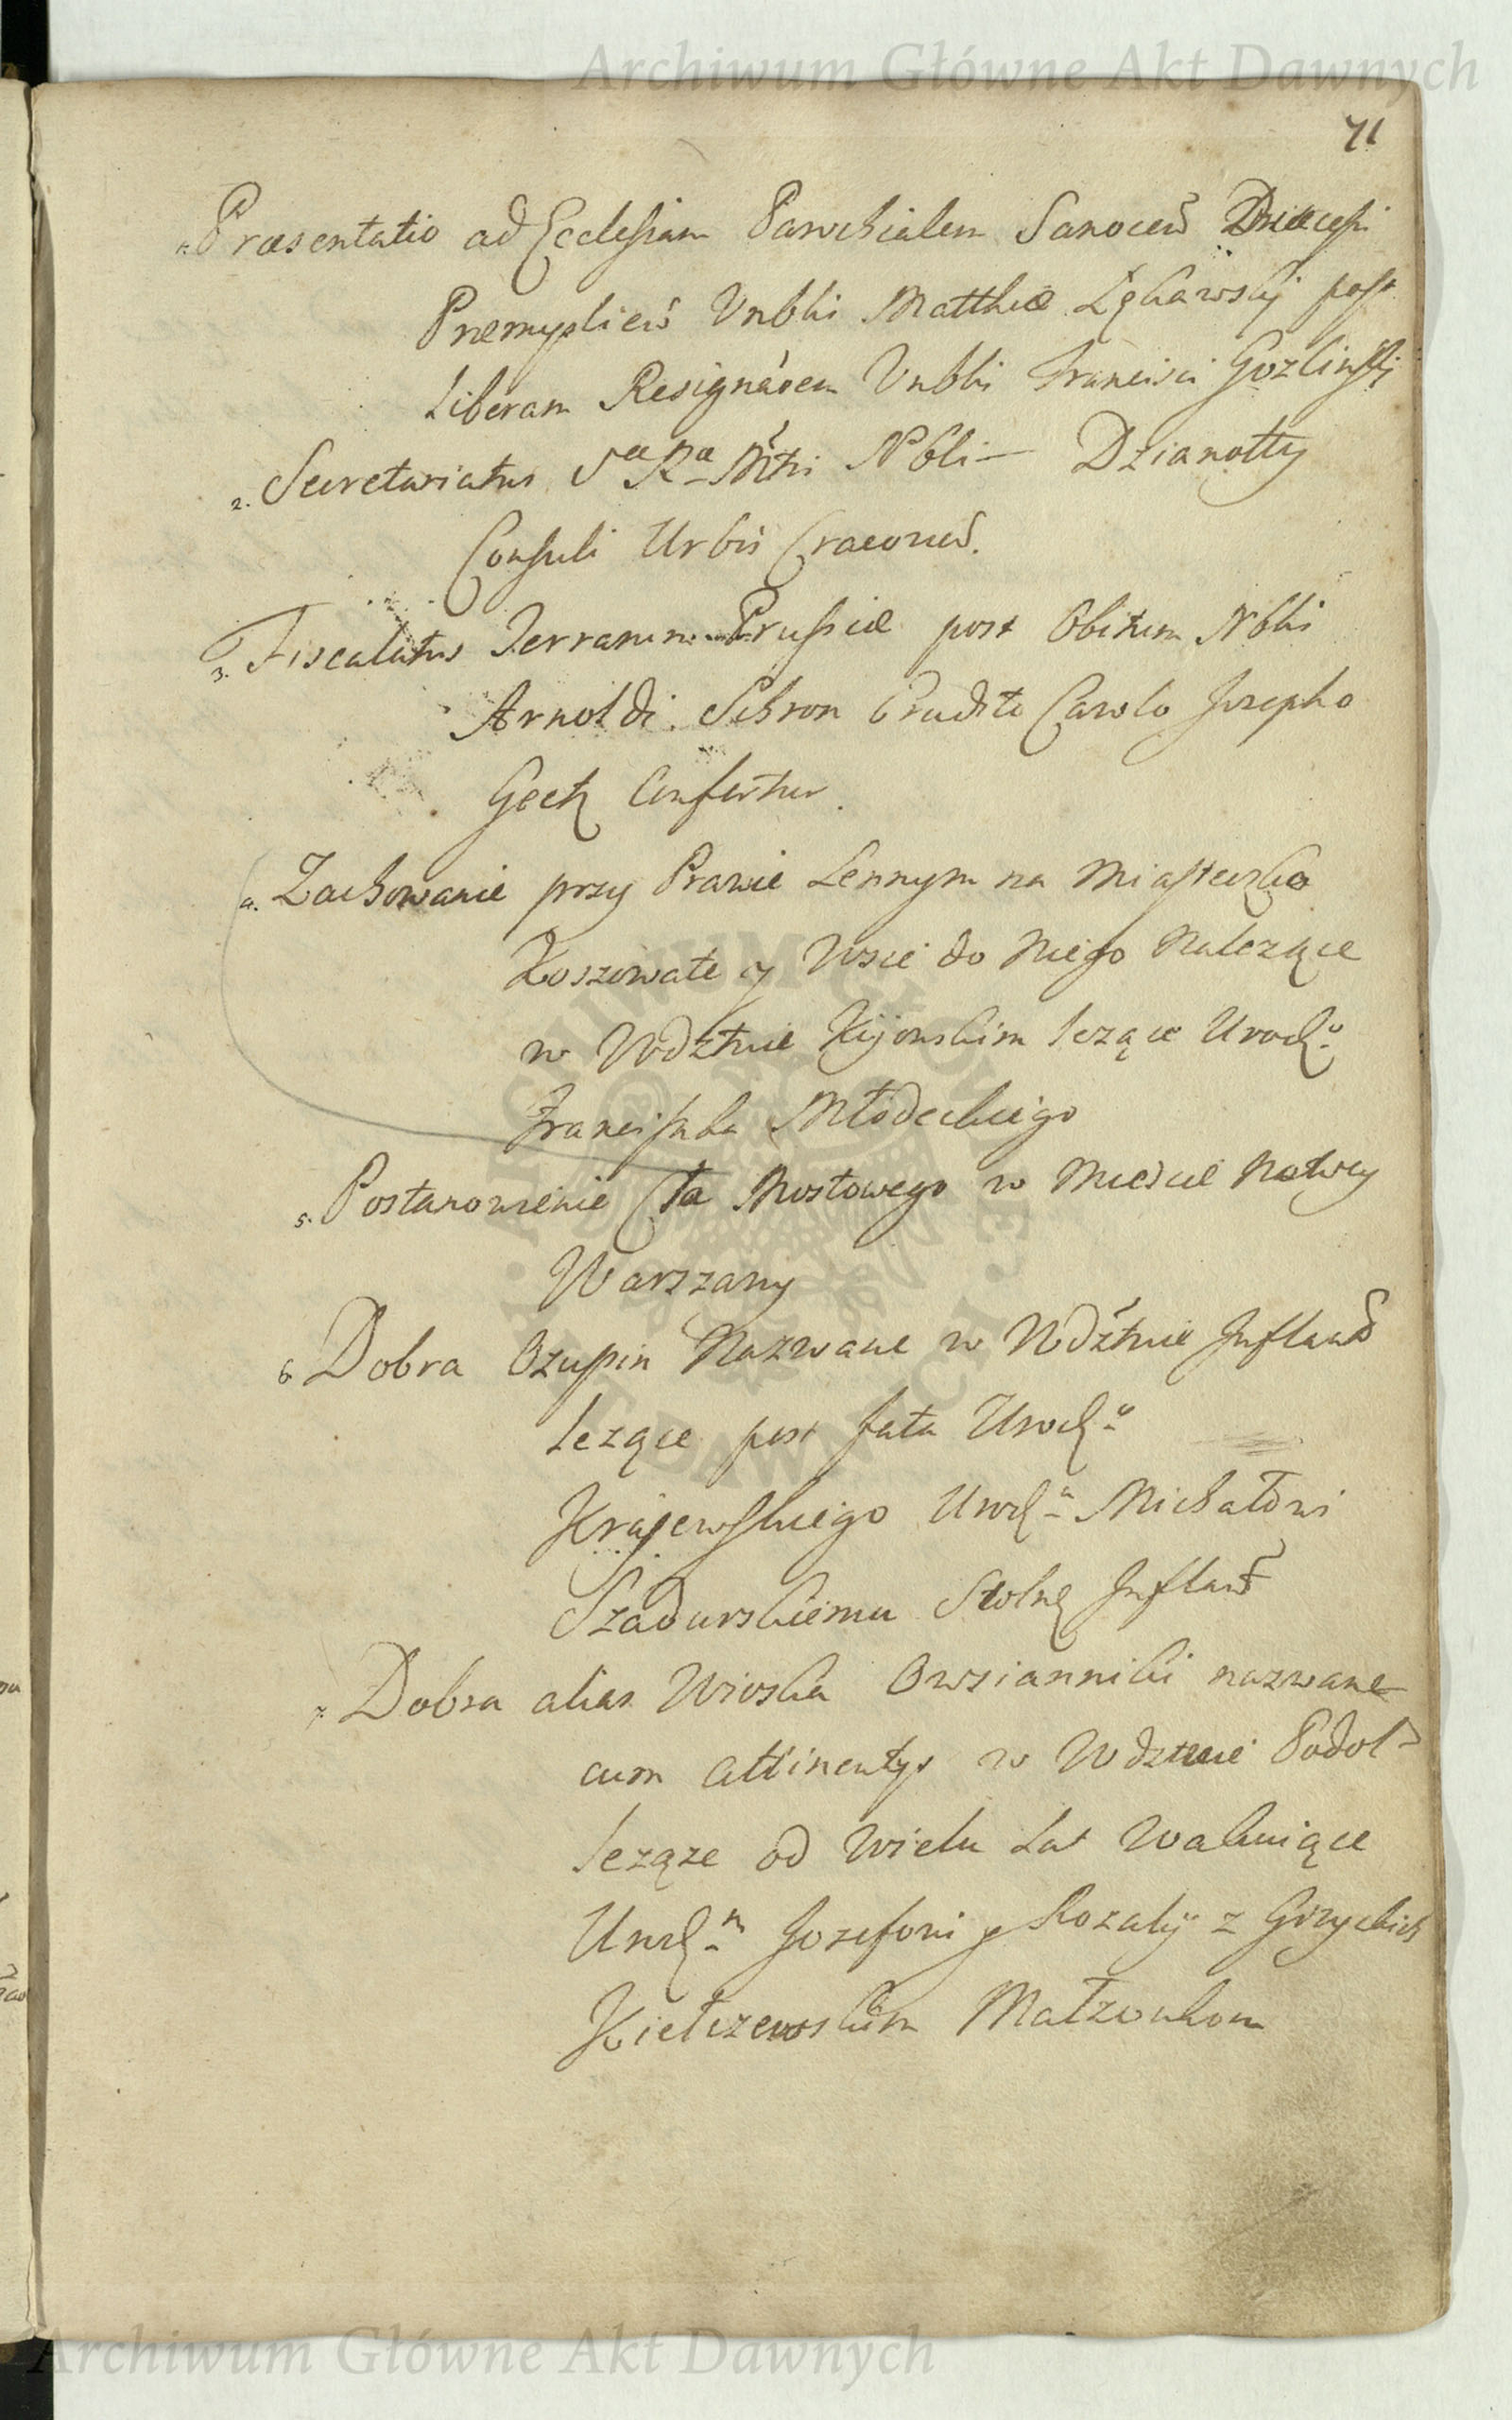 Archiwum Główne Akt Dawnych
71
1. Præsentatio ad Ecclesiam Parochialem Sanocen Diæcesis
Premyslien Vnbli Matthiæ Lękawskj post
Liberam Resignaoem Vnbli Francisci Gozlinskj
2. Secretariatus Sæ Ræ Mtti Nbli — Dzianotty
Consuli Urbis Cracovien.
3. Fiscalatus Terrarum Prussiæ post Obitum Nbli
Arnoldi Schron Erudito Carolo Josepho
Geeh Confertur.
4. Zachowanie przy Prawie Lennym na Miasteczko
Koszowate y Wsie do Niego Należące
w Wdztwie Kijowskim leżące Urodz.
Franciszka Młodeckiego
5. Postanowienie Cła Mostowego w Mieście Naszey
Warszawy
6. Dobra Ozupin Nazwane w Wdztwie Infland
leżące post fata Urodz.
Krajewskiego Urodz. Michałowi
Szadurskiemu Stolni Inflant
7. Dobra alias Wioska Owsianniki nazwane
cum attinentys w Wdztwie Podol
leżące od Wielu Lat Wakuiące
Urodz. Jozefowi y Rozalij z Gizyckich
Kiełczewskim Małżonkom
ARCHIWUM GŁÓWNE AKT DAWNYCH
Archiwum Główne Akt Dawnych